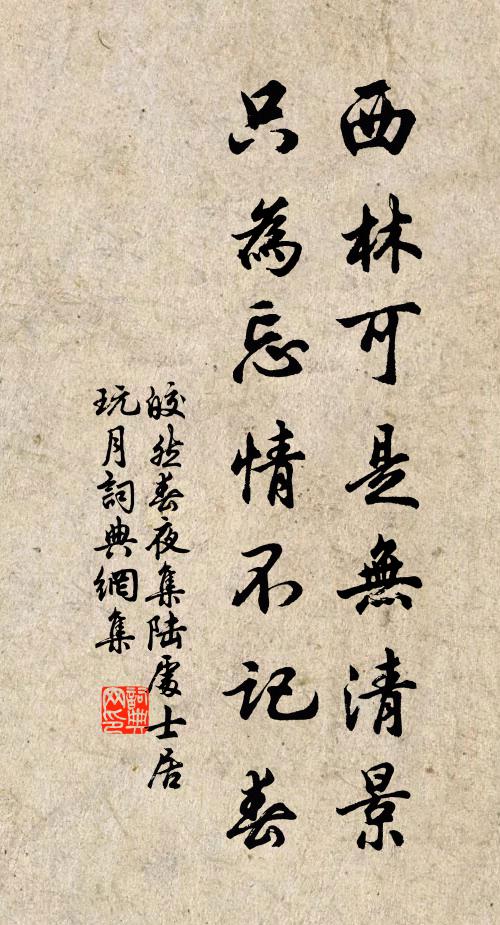 西林可是無清景
只為忘情不記春
皎然春夜集陸處士居
玩月詞典網集
詞典
网印